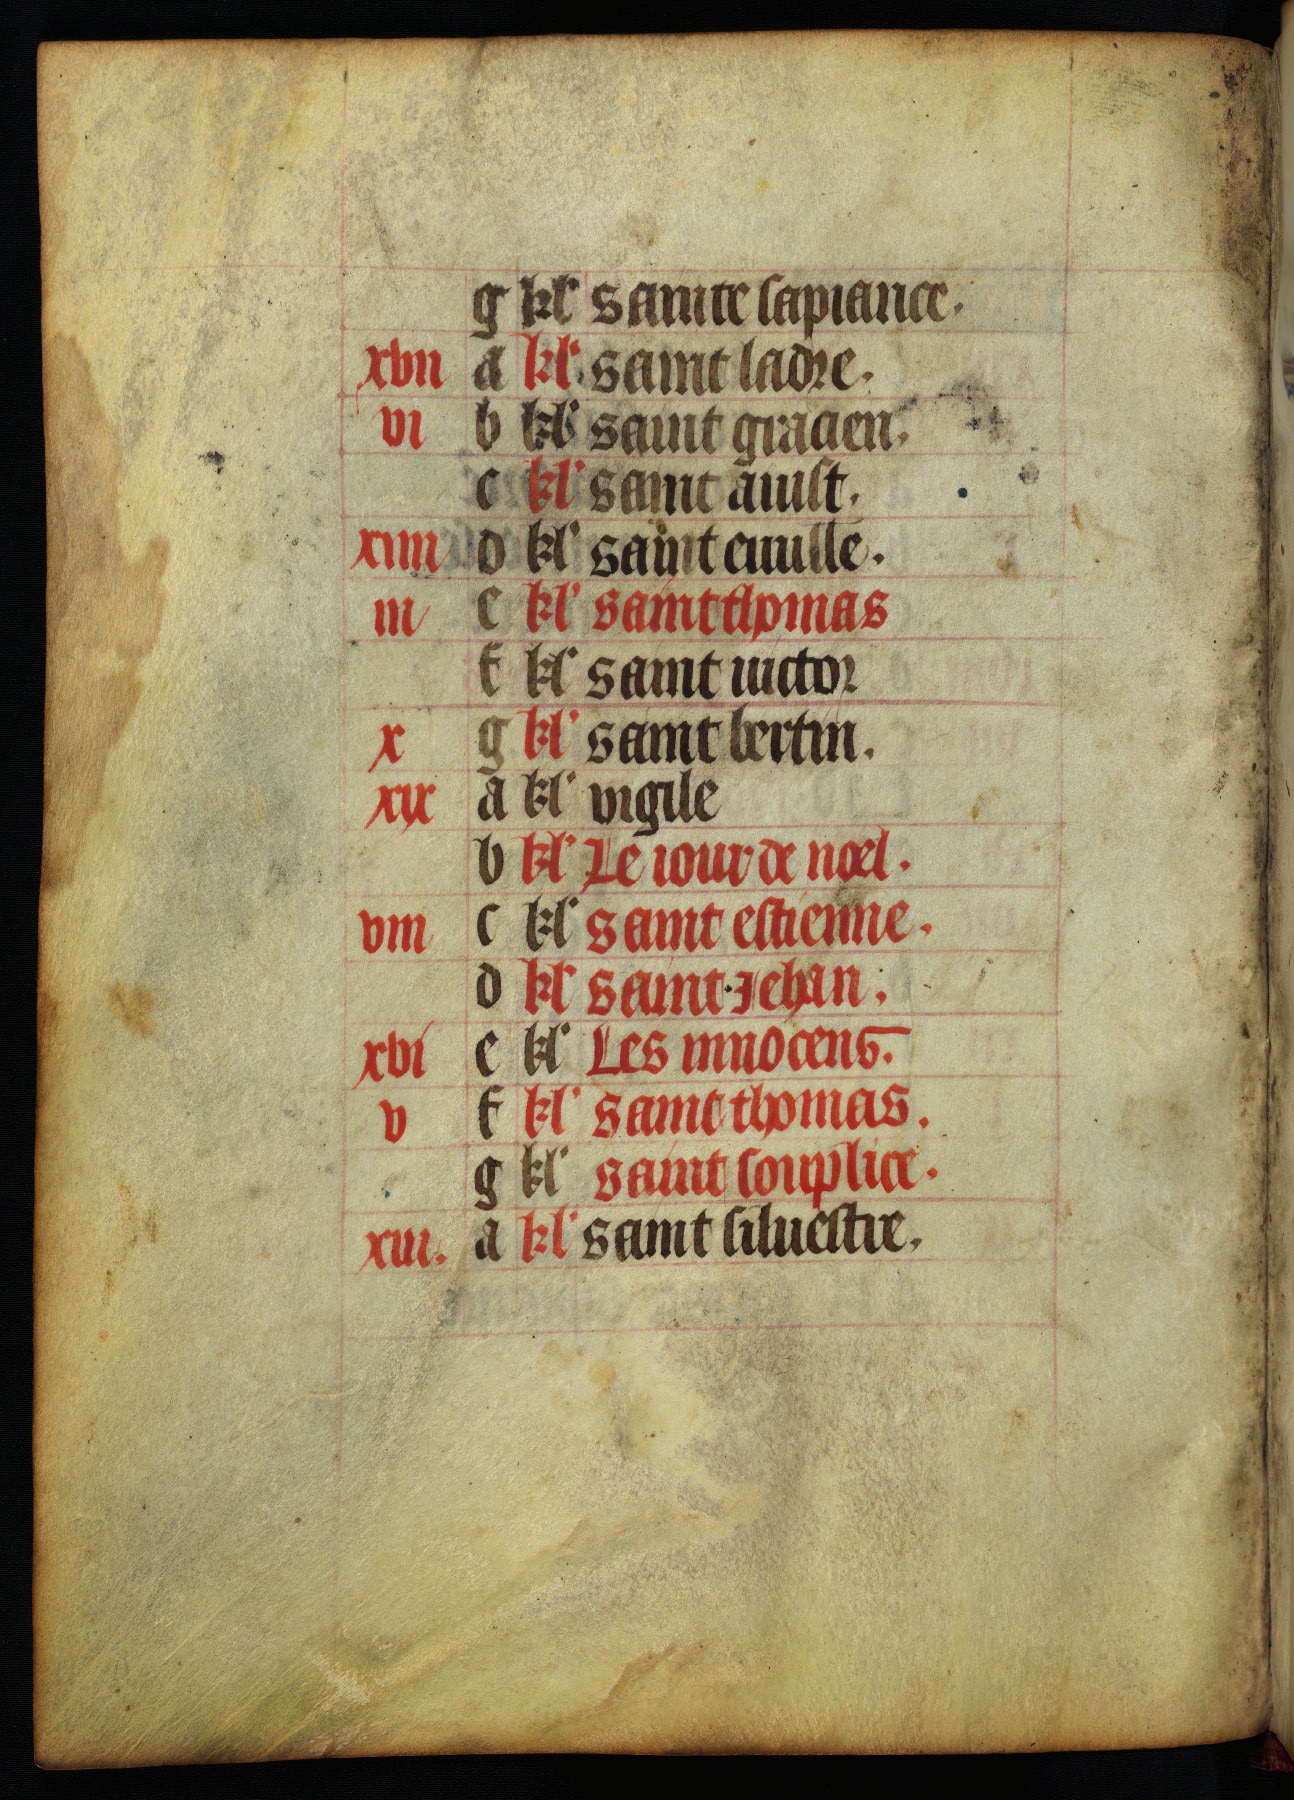 g kl' sainte sapiance.
xvii a kl' saint ladre.
vi b kl' saint gracien.
c kl' saint auist.
xiiii d kl' saint cuulle.
iii e kl' saint thomas
f kl' saint uictor
x g kl' saint bertin.
xix a kl' vigile
b kl' Le iour de noel.
viii c kl' saint estienne.
d kl' saint Jehan.
xvi e kl' Les innocens.
v f kl' saint thomas.
g kl' saint souplice.
xiii. a kl' saint siluestre.